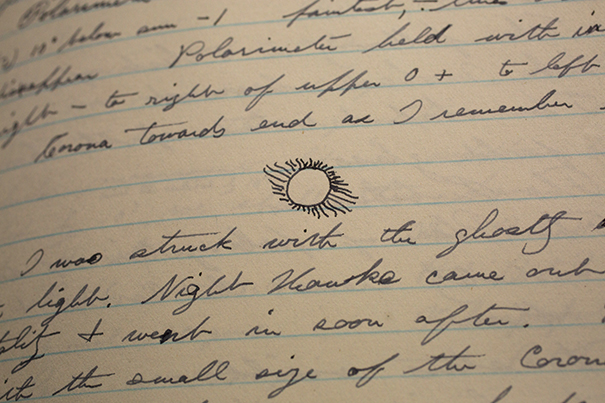 Polarimeter
10° below sun -1 faintest, - line
disappear Polarimeter held with in
right - to right of upper 0 + to left
Corona towards end as I remember -
I was struck with the ghostly
light. Night Hawks came out
& went in soon after.
with the small size of the Corona